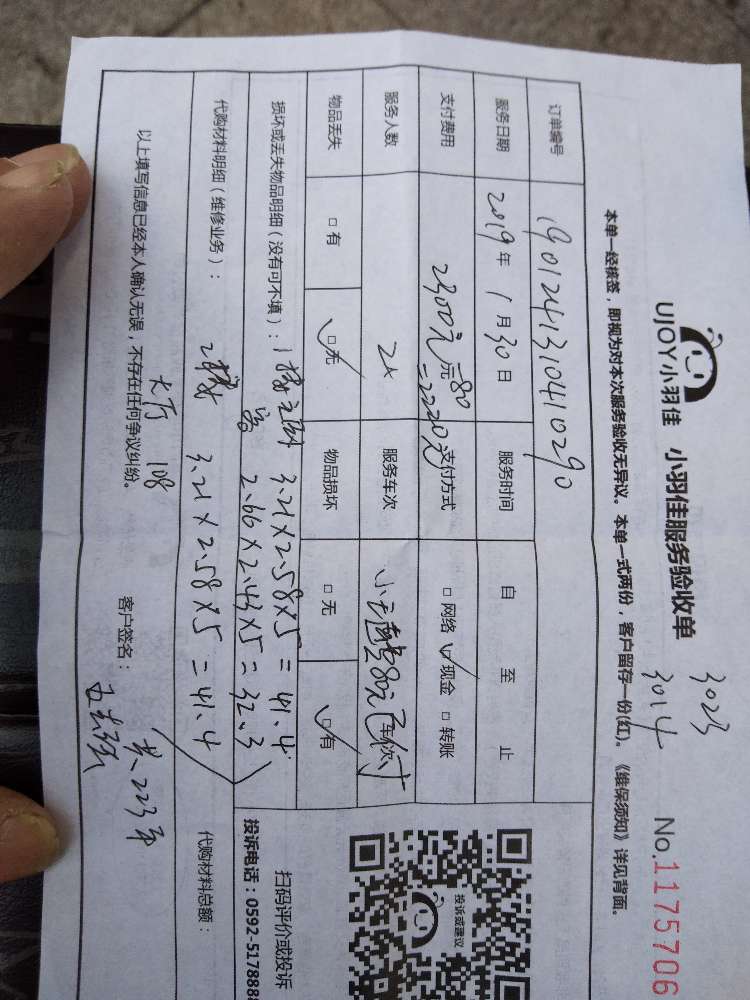 UJOY小羽佳 小羽佳服务验收单
3023
3014
No.1175706
本单一经核签，即视为对本次服务验收无异议。本单一式两份，客户留存一份(红)。《维保须知》详见背面。
订单编号 1901241310410290
服务日期 2019年1月30日 服务时间 自 至 止
支付费用 2300元元-80 支付方式 □网络 ☑现金 □转账
=2220元
服务人数 2人 服务车次 80元已车次付
物品丢失 □有 ☑无 物品损坏 □无 ☑有
损坏或丢失物品明细（没有可不填）：1楼 3.21×2.58×5=41.4
2.66×2.43×5=32.3
代购材料明细（维修业务）： 2楼 3.21×2.58×5=41.4 代购材料总额：
大厅 108
共223平
以上填写信息已经本人确认无误，不存在任何争议纠纷。 客户签名：
投诉或建议
扫码评价或投诉
投诉电话：0592-5178888